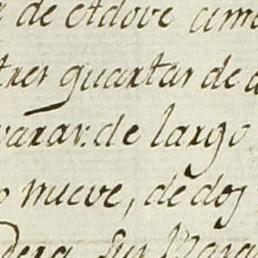 de etdove
tres quartas de
varas: de largo
nueve, de dos